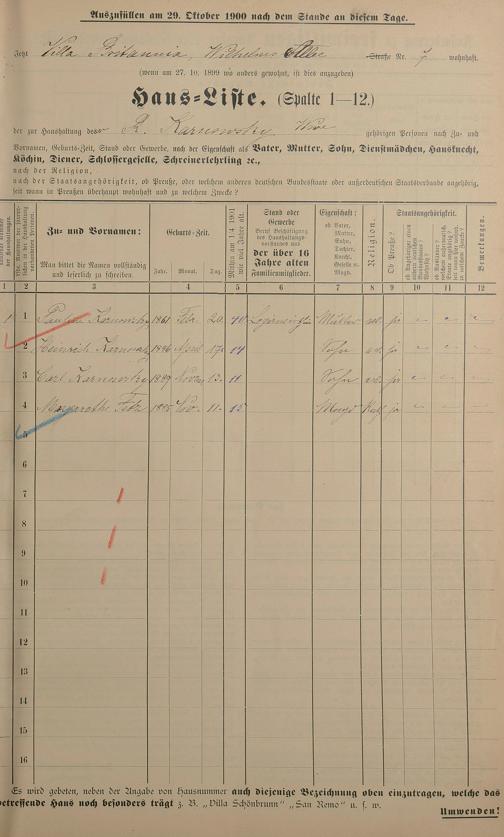 Auszufüllen am 29. Oktober 1900 nach dem Stande an diesem Tage.
Jetzt Villa Britannia, Wilhelms Allee Straße Nr. 7 wohnhaft.
(wenn am 27. 10. 1899 wo anders gewohnt, ist dies anzugeben)
Haus-Liste. (Spalte 1—12.)
der zur Haushaltung des R. Karnowsky Wwe gehörigen Personen nach Zu- und
Vornamen, Geburts-Zeit, Stand oder Gewerbe, nach der Eigenschaft als Vater, Mutter, Sohn, Dienstmädchen, Hausknecht,
Köchin, Diener, Schlossergeselle, Schreinerlehrling ꝛc.,
nach der Religion,
nach der Staatsangehörigkeit, ob Preuße, oder welchem anderen deutschen Bundesstaate oder außerdeutschen Staatsverbande angehörig,
seit wann in Preußen überhaupt wohnhaft und zu welchem Zwecke?
Zu- und Vornamen:
Man bittet die Namen vollständig und leserlich zu schreiben.
Geburts-Zeit.
Jahr. Monat. Tag.
Mithin am 1/4 1901 wie viel Jahre alt.
Stand oder Gewerbe
der über 16 Jahre alten Familienmitglieder.
Eigenschaft:
ob Vater, Mutter, Sohn, Tochter, Knecht, Geselle o. Magd.
Religion.
Staatsangehörigkeit.
Ob Preuße?
Bemerkungen.
1 2 3 4 5 6 7 8 9 10 11 12
1 1 Karnowsky 1861 Febr 20. 40 Mutter ja
2 Heinrich Karnowsky 1886 April 17. 14 Sohn ja
3 Carl Karnowsky 1889 13. 11 Sohn ja
4 Margarethe 1885 Nov. 11. 15 Magd ja
5
6
7
8
9
10
11
12
13
14
15
16
Es wird gebeten, neben der Angabe von Hausnummer auch diejenige Bezeichnung oben einzutragen, welche das
betreffende Haus noch besonders trägt z. B. „Villa Schönbrunn" „San Remo" u. s. w.
Umwenden!